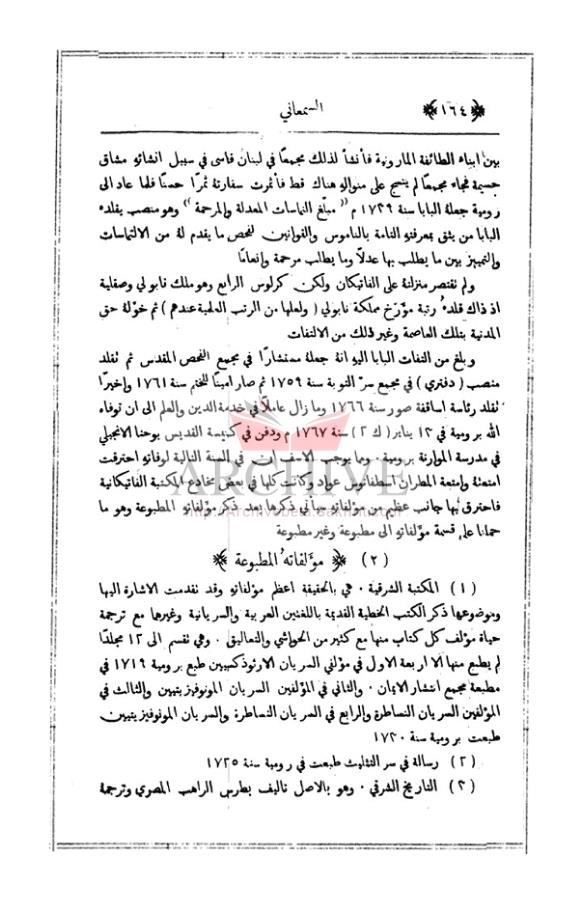 ﴿ ١٦٤ ﴾ السمعاني
بين ابناء الطائفة المارونية فأنشأ لذلك مجمعًا في لبنان قاسى في سبيل انشائو مشاق
جسيمة فجاء مجمعًا لم ينسج على منوالهِ هناك قط فأثمرت سفارتهُ ثمرًا حسنًا فلما عاد الى
رومية جعلهُ البابا سنة ١٧٣٩ م ”مبلّغ التماسات المعدلة والمرحمة“ وهو منصب يقلدهُ
البابا من يثق بمعرفتهِ التامة بالناموس والقوانين لفحص ما يقدم لهُ من الالتماسات
والتمييز بين ما يطلب بها عدلًا وما يطلب مرحمة وإنعامًا
ولم تقتصر منزلتهُ على الفاتيكان ولكن كرلوس الرابع وهو ملك نابولي وصقلية
اذ ذاك قلدهُ رتبة مؤرّخ مملكة نابولي ( ولعلها من الرتب العلمية عندهم ) ثم خوّلهُ حق
المدنية بتلك العاصمة وغير ذلك من الالتفات
وبلغ من التفات البابا اليهِ انهُ جعلهُ مستشارًا في مجمع الفحص المقدس ثم تقلد
منصب ( دفتري ) في مجمع سرّ التوبة سنة ١٧٥٩ ثم صار امينًا للختم سنة ١٧٦١ وإخيرًا
تقلد رئاسة اساقفة صور سنة ١٧٦٦ وما زال عاملًا في خدمة الدين والعلم الى ان توفاهُ
الله برومية في ١٣ يناير ( ك ٢ ) سنة ١٧٦٧ م ودفن في كنيسة القديس يوحنا الانجيلي
في مدرسة الموارنة برومية . ومما يوجب الاسف ان في السنة التالية لوفاتهِ احترقت
امتعتهُ وإمتعة المطران اسطفانوس عواد وكانت كلها في بعض مخادع المكتبة الفاتيكانية
فاحترق بها جانب عظيم من مؤلفاتهِ سيأتي ذكرها بعد ذكر مؤلفاتهِ المطبوعة وهو ما
حملنا على قسمة مؤلفاتهِ الى مطبوعة وغير مطبوعة
( ٢ ) ﴿ مؤلفاتهُ المطبوعة ﴾
( ١ ) المكتبة الشرقية . هي بالحقيقة اعظم مؤلفاتهِ وقد تقدمت الاشارة اليها
وموضوعها ذكر الكتب الخطية القديمة باللغتين العربية والسريانية وغيرها مع ترجمة
حياة مؤلف كل كتاب منها مع كثير من الحواشي والتعاليق . وهي تقسم الى ١٢ مجلدًا
لم يطبع منها الا اربعة الاول في مؤلفي السريان الارثوذكسيين طبع برومية ١٧١٩ في
مطبعة مجمع انتشار الايمان . والثاني في المؤلفين السريان المونوفيزيتيين والثالث في
المؤلفين السريان النساطرة والرابع في السريان النساطرة والسريان المونوفيزيتيين
طبعت برومية سنة ١٧٣٠
( ٢ ) رسالة في سر التثليث طبعت في رومية سنة ١٧٢٥
( ٣ ) التاريخ الشرقي . وهو بالاصل تاليف بطرس الراهب المصري وترجمة
ARCHIVE